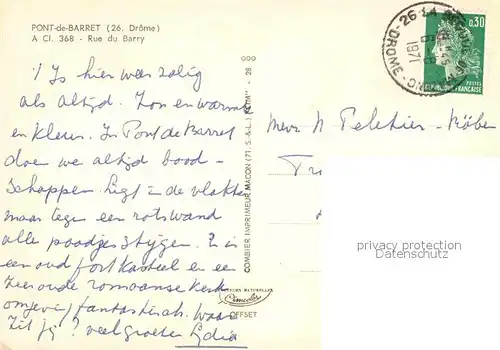 PONT-de-BARRET (26. Drôme)
A Cl. 368 - Rue du Barry
't Is hier weer zalig
als altijd. Zon en warmte
en kleur. In Pont de Barret
doen we altijd bood-
schappen. Ligt in de vlakte
maar tegen een rotswand
alle paadjes stijgen. Er is
een oud fort kasteel en een
zeer oude romaanse kerk
omgeving fantastisch. Waar
zit jij? veel groeten Lydia
COMBIER IMPRIMEUR MACON (71. S.-&-L.
28
Combier
OFFSET
26
DROME
1971
0,30
POSTES
REPUBLIQUE FRANÇAISE
Mevr N Peletier -
privacy protection
oldthing.de